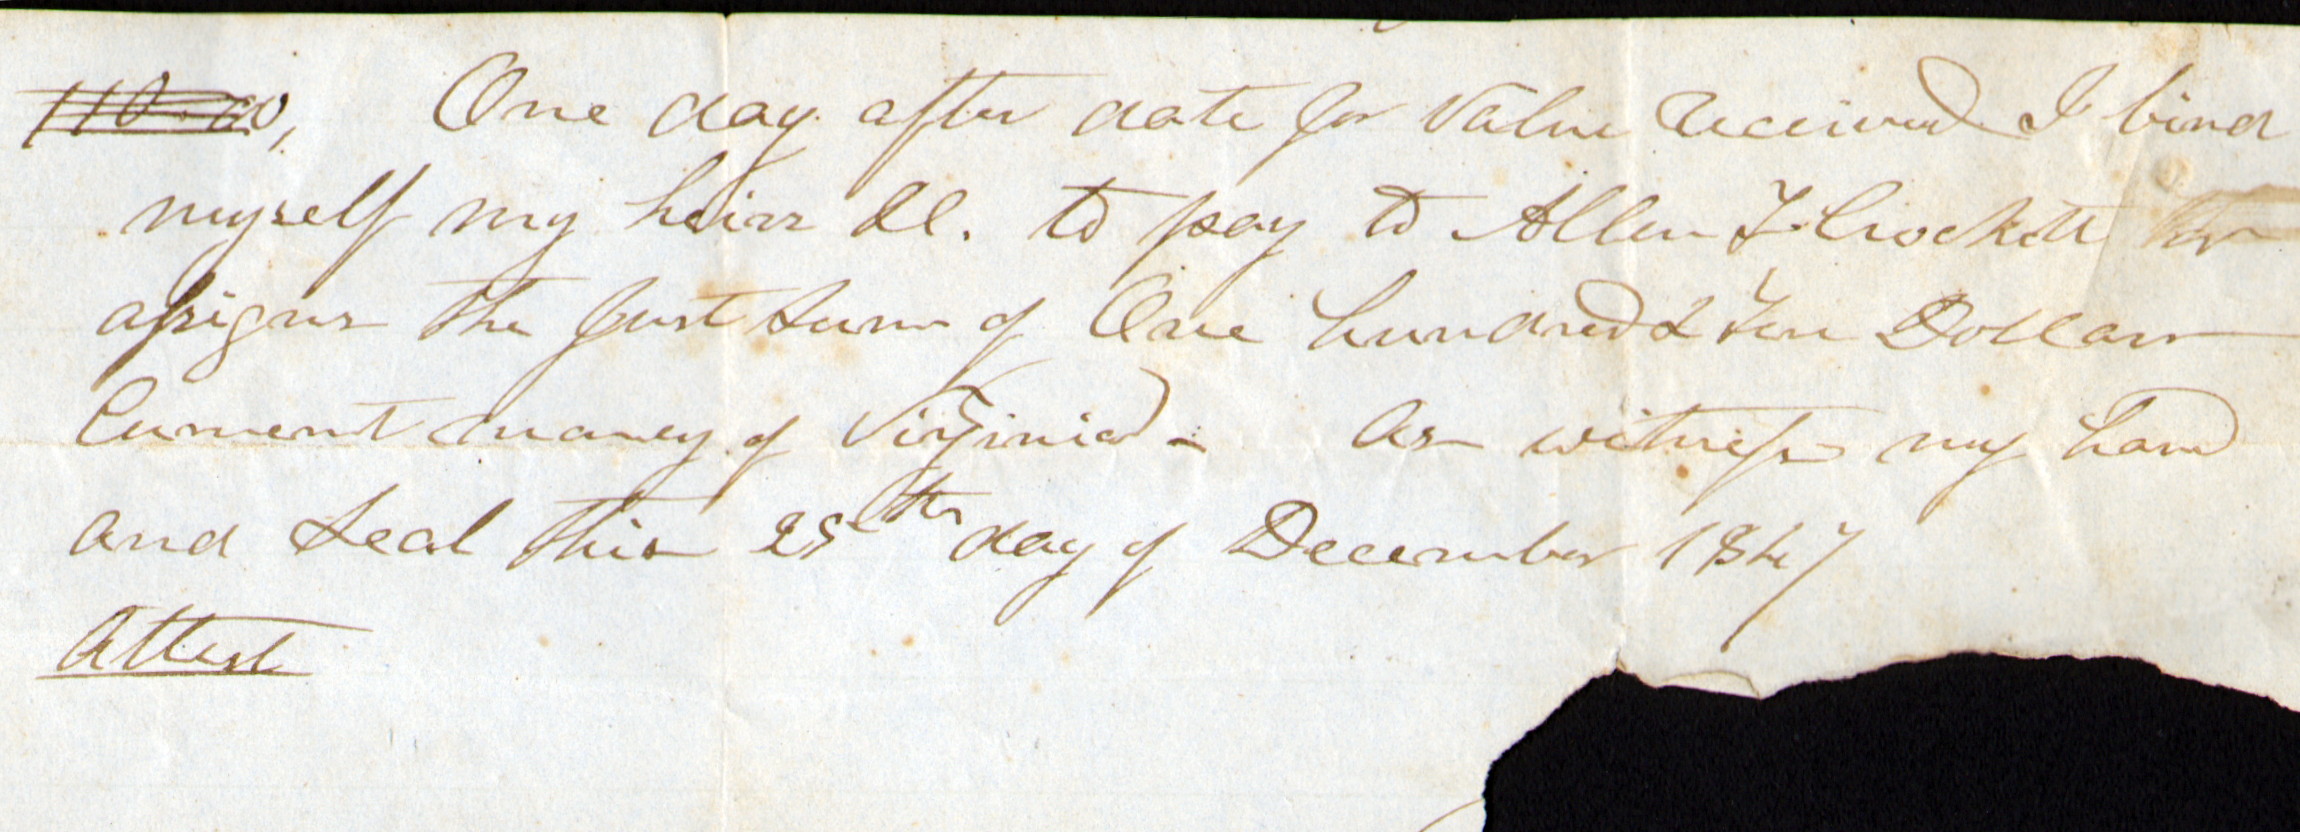 110.00, One day after date for Value Received I bind
myself my heirs &c. to pay to Allen T. Crockett or
assigns the Just sum of One hundred & Ten Dollars
Current money of Virginia - As witness my hand
and Seal this 25th day of December 1847
Attest